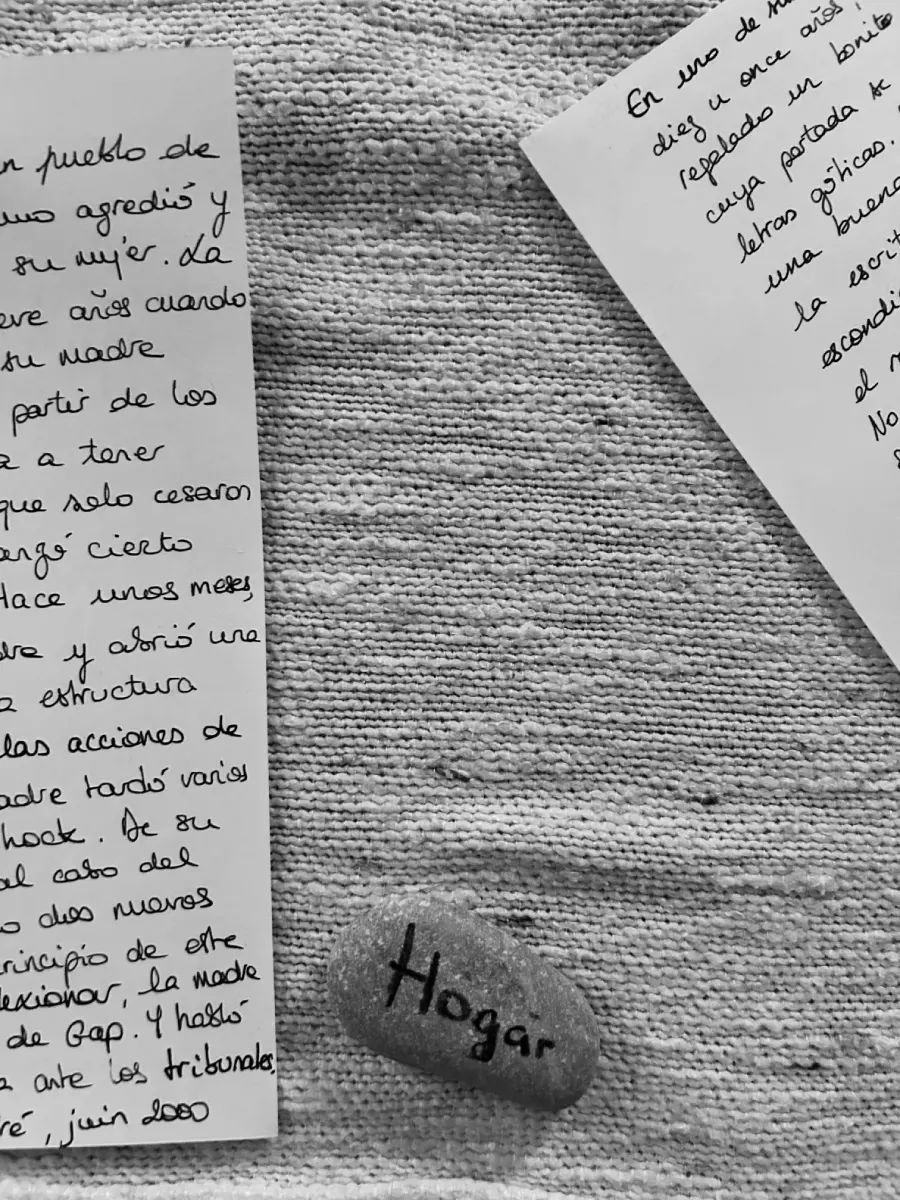 n pueblo de
uno agredió y
su mujer. La
eve años cuando
su madre
partir de los
a a tener
que solo cesaron
anzó cierto
Hace unos meses,
dre y abrió una
a estructura
las acciones de
adre tardó varios
hock. De su
al cabo del
o dos nuevos
rincipio de este
lexionar, la madre
de Gap. Y habló
a ante los tribunales.
ré, juin 2000
En uno de
diez u once años,
regalado un bonito
cuya portada se
letras góticas.
una buena
la escrit
escondi
el
No
Hogar